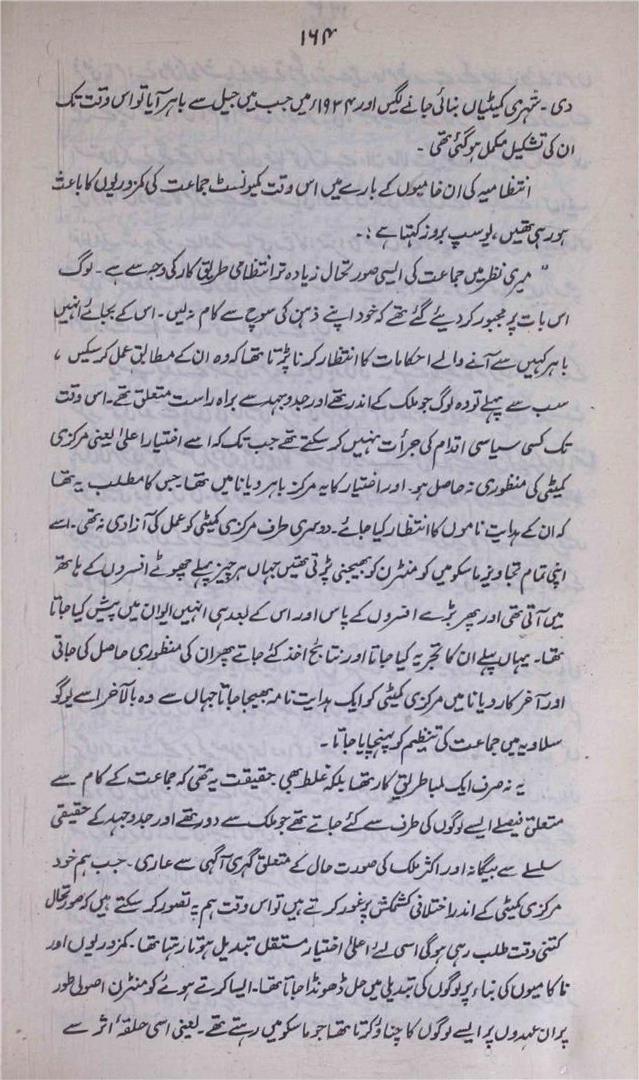 ۱۶۴
دی۔ شہری کمیٹیاں بنائی جانے لگیں اور ۱۹۳۴ء میں جب میں جیل سے باہر آیا تو اس وقت تک
ان کی تشکیل مکمل ہو گئی تھی۔
انتظامیہ کی ان خامیوں کے بارے میں اس وقت کمیونسٹ جماعت کی کمزوریوں کا باعث
ہو رہی تھیں، یوسپ بروز کہتا ہے:۔
"میری نظر میں جماعت کی ایسی صورتحال زیادہ تر انتظامی طریق کار کی وجہ سے ہے۔ لوگ
اس بات پر مجبور کر دیئے گئے تھے کہ خود اپنے ذہن کی سوچ سے کام نہ لیں۔ اس کے بجائے انہیں
باہر کہیں سے آنے والے احکامات کا انتظار کرنا پڑتا تھا کہ وہ ان کے مطابق عمل کر سکیں،
سب سے پہلے تو وہ لوگ جو ملک کے اندر تھے اور جدوجہد سے براہ راست متعلق تھے۔ اس وقت
تک کسی سیاسی اقدام کی جرأت نہیں کر سکتے تھے جب تک کہ اسے اختیار اعلیٰ یعنی مرکزی
کمیٹی کی منظوری نہ حاصل ہو۔ اور اختیار کا یہ مرکز باہر ویانا میں تھا جس کا مطلب یہ تھا
کہ ان کے ہدایت ناموں کا انتظار کیا جائے۔ دوسری طرف مرکزی کمیٹی کو عمل کی آزادی نہ تھی۔ اسے
اپنی تمام تجاویز ماسکو میں کومنٹرن کو بھیجنی پڑتی تھیں جہاں ہر چیز پہلے چھوٹے افسروں کے ہاتھ
میں آتی تھی اور پھر بڑے افسروں کے پاس اور اس کے بعد ہی انہیں ایوان میں پیش کیا جاتا
تھا۔ یہاں پہلے ان کا تجزیہ کیا جاتا اور نتائج اخذ کئے جاتے پھر ان کی منظوری حاصل کی جاتی
اور آخر کار ویانا میں مرکزی کمیٹی کو ایک ہدایت نامہ بھیجا جاتا جہاں سے وہ بالآخر اسے یوگو
سلاویہ میں جماعت کی تنظیم کو پہنچایا جاتا۔
یہ نہ صرف ایک لمبا طریق کار تھا بلکہ غلط بھی۔ حقیقت یہ تھی کہ جماعت کے کام سے
متعلق فیصلے ایسے لوگوں کی طرف سے کئے جاتے تھے جو ملک سے دور تھے اور جدوجہد کے حقیقی
سلسلے سے بیگانہ اور اکثر ملک کی صورت حال کے متعلق گہری آگہی سے عاری۔ جب ہم خود
مرکزی کمیٹی کے اندر اختلافی کشمکش پر غور کرتے ہیں تو اس وقت ہم یہ تصور کر سکتے ہیں کہ صورتحال
کتنی دقت طلب رہی ہوگی اسی لئے اعلیٰ اختیار مستقل تبدیل ہوتا رہتا تھا۔ کمزوریوں اور
ناکامیوں کی بناء پر لوگوں کی تبدیلی میں حل ڈھونڈا جاتا تھا۔ ایسا کرتے ہوئے کومنٹرن اصولی طور
پر ان عہدوں پر ایسے لوگوں کا چناؤ کرتا تھا جو ماسکو میں رہتے تھے۔ یعنی اسی حلقۂ اثر سے